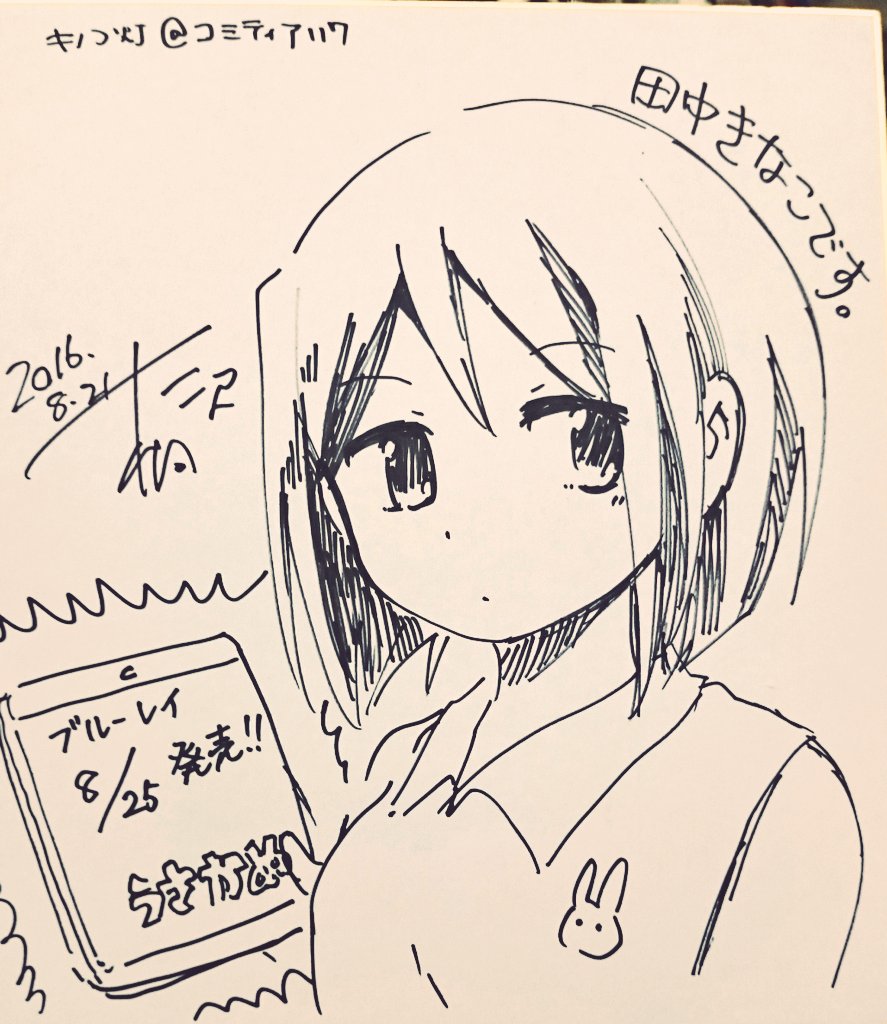 キノコ灯@コミティア117
田中きなこです。
2016.
8.21
ブルーレイ
8/25 発売!!
うさかめ